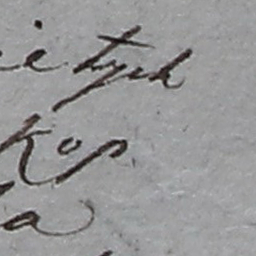 ie tych
kop
a